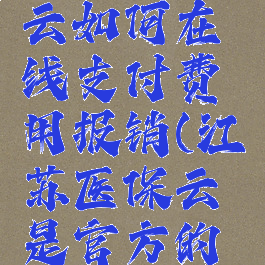 云如何在
线支付费
用报销(江
苏医保云
是官方的